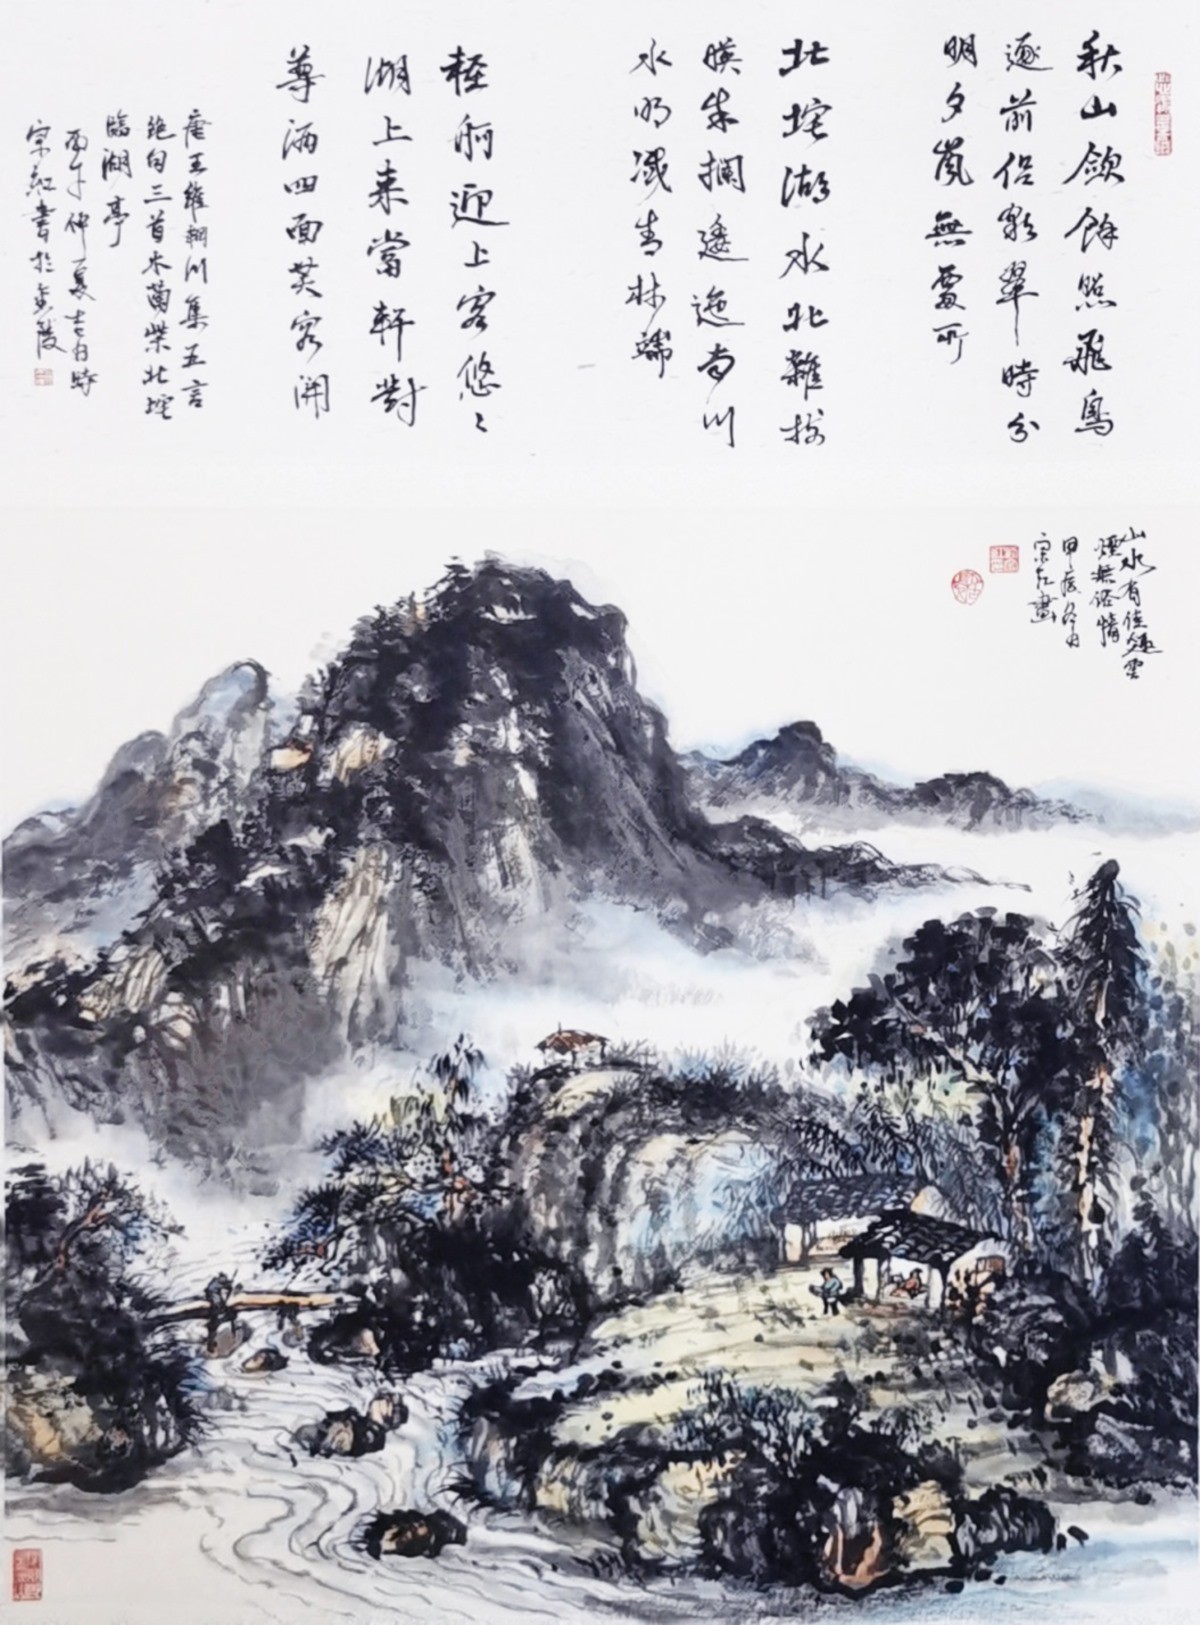 秋山歛餘照飛鳥
逐前侣彩翠時分
明夕嵐無處所
北垞湖水北雜樹
暎朱攔逶迤南川
水明滅青林端
輕舸迎上客悠々
湖上来當軒對
尊酒四面芙容開
唐王維輞川集五言
絶句三首木蘭柴北垞
臨湖亭
丙午仲夏吉日時
宗紅書於金陵
山水有佳趣雲
煙無俗情
甲辰冬月
宗紅畫